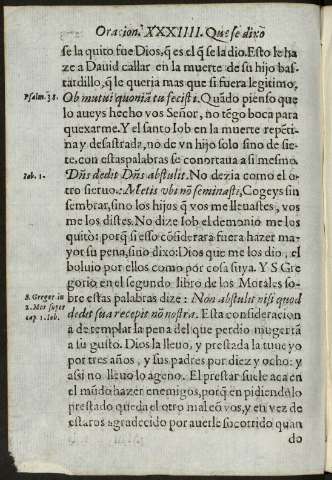 Oracion. XXXIIII. Que se dixo
se la quito fue Dios, q̃ es el q̃ se la dio. Esto le ha
ze a Dauid callar en la muerte de su hijo bas-
tardillo, q̃ le queria mas que si fuera legitimo,
Psalm. 38.
Ob mutui quoniã tu fecisti. Quãdo pienso que
lo aueys hecho vos Señor, no tẽgo boca para
quexarme. Y el santo Iob en la muerte repẽti-
na y desastrada, no de vn hijo solo sino de sie-
te, con estas palabras se conortaua a si mesmo.
Iob. 1.
Dñs dedit Dñs abstulit. No dezia como el o-
tro sieruo: Metis vbi nõ seminasti, Cogeys sin
sembrar, sino los hijos q̃ vos me lleuastes, vos
me los distes. No dize Iob el demonio me los
quitò: porq̃ si esso cõsiderara fuera hazer ma-
yor su pena, sino dixo: Dios que me los dio, el
boluio por ellos como por cosa suya. Y S. Gre
gorio en el segundo libro de los Morales so-
S. Gregor. in
2. Mor. super
cap. 1. Iob.
bre estas palabras dize: Non abstulit nisi quod
dedit sua recepit nõ nostra. Esta consideracion
a de templar la pena del que perdio muger tã
a su gusto. Dios la lleuo, y prestada la tuue yo
por tres años, y sus padres por diez y ocho: y
assi no lleuo lo ageno. El prestar suele aca en
el mũdo hazer enemigos, porq̃ en pidiendo lo
prestado queda el otro mal cõ vos, y en vez de
estaros agradecido por auerle socorrido quan
do